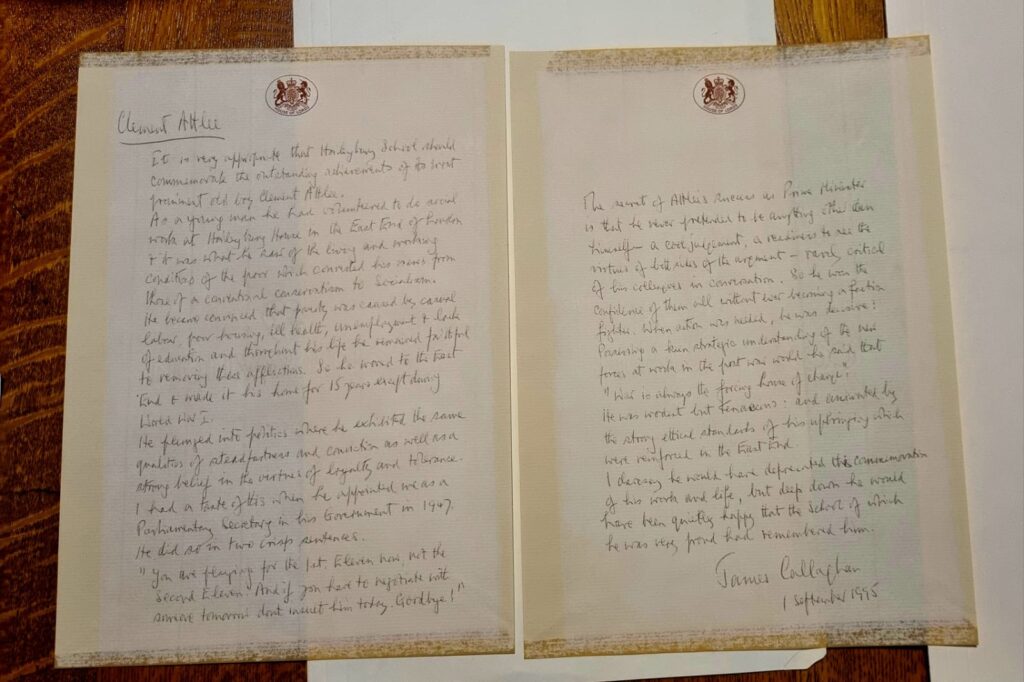 HOUSE OF LORDS
Clement Attlee
It is very appropriate that Haileybury School should
commemorate the outstanding achievements of its most
prominent old boy Clement Attlee.
As a young man he had volunteered to do social
work at Haileybury House in the East End of London
& it was what he saw of the living and working
conditions of the poor which converted his views from
those of a conventional conservatism to Socialism.
He became convinced that poverty was caused by casual
labor, poor housing, ill health, unemployment & lack
of education and throughout his life he remained faithful
to removing these afflictions. So he moved to the East
End & made it his home for 15 years except during
World War I.
He plunged into politics where he exhibited the same
qualities of steadfastness and conviction as well as a
strong belief in the virtues of loyalty and tolerance.
I had a taste of this when he appointed me as a
Parliamentary Secretary in his Government in 1947.
He did so in two crisp sentences.
"You are playing for the 1st. Eleven now, not the
Second Eleven. And if you have to negotiate with
someone tomorrow dont insult him today. Goodbye!"
HOUSE OF LORDS
The secret of Attlee's success as Prime Minister
is that he never pretended to be anything other than
himself – a cool judgement, a readiness to see the
virtues of both sides of the argument – rarely critical
of his colleagues in conversation. So he won the
confidence of them all without ever becoming a faction
fighter. When action was needed, he was decisive!
Possessing a keen strategic understanding of the new
forces at work in the post war world he said that
"War is always the forcing house of change".
He was modest but tenacious: and animated by
the strong ethical standards of his upbringing which
were reinforced in the East End.
I daresay he would have deprecated this commemoration
of his work and life, but deep down he would
have been quietly happy that the School of which
he was very proud had remembered him.
James Callaghan
1 September 1995